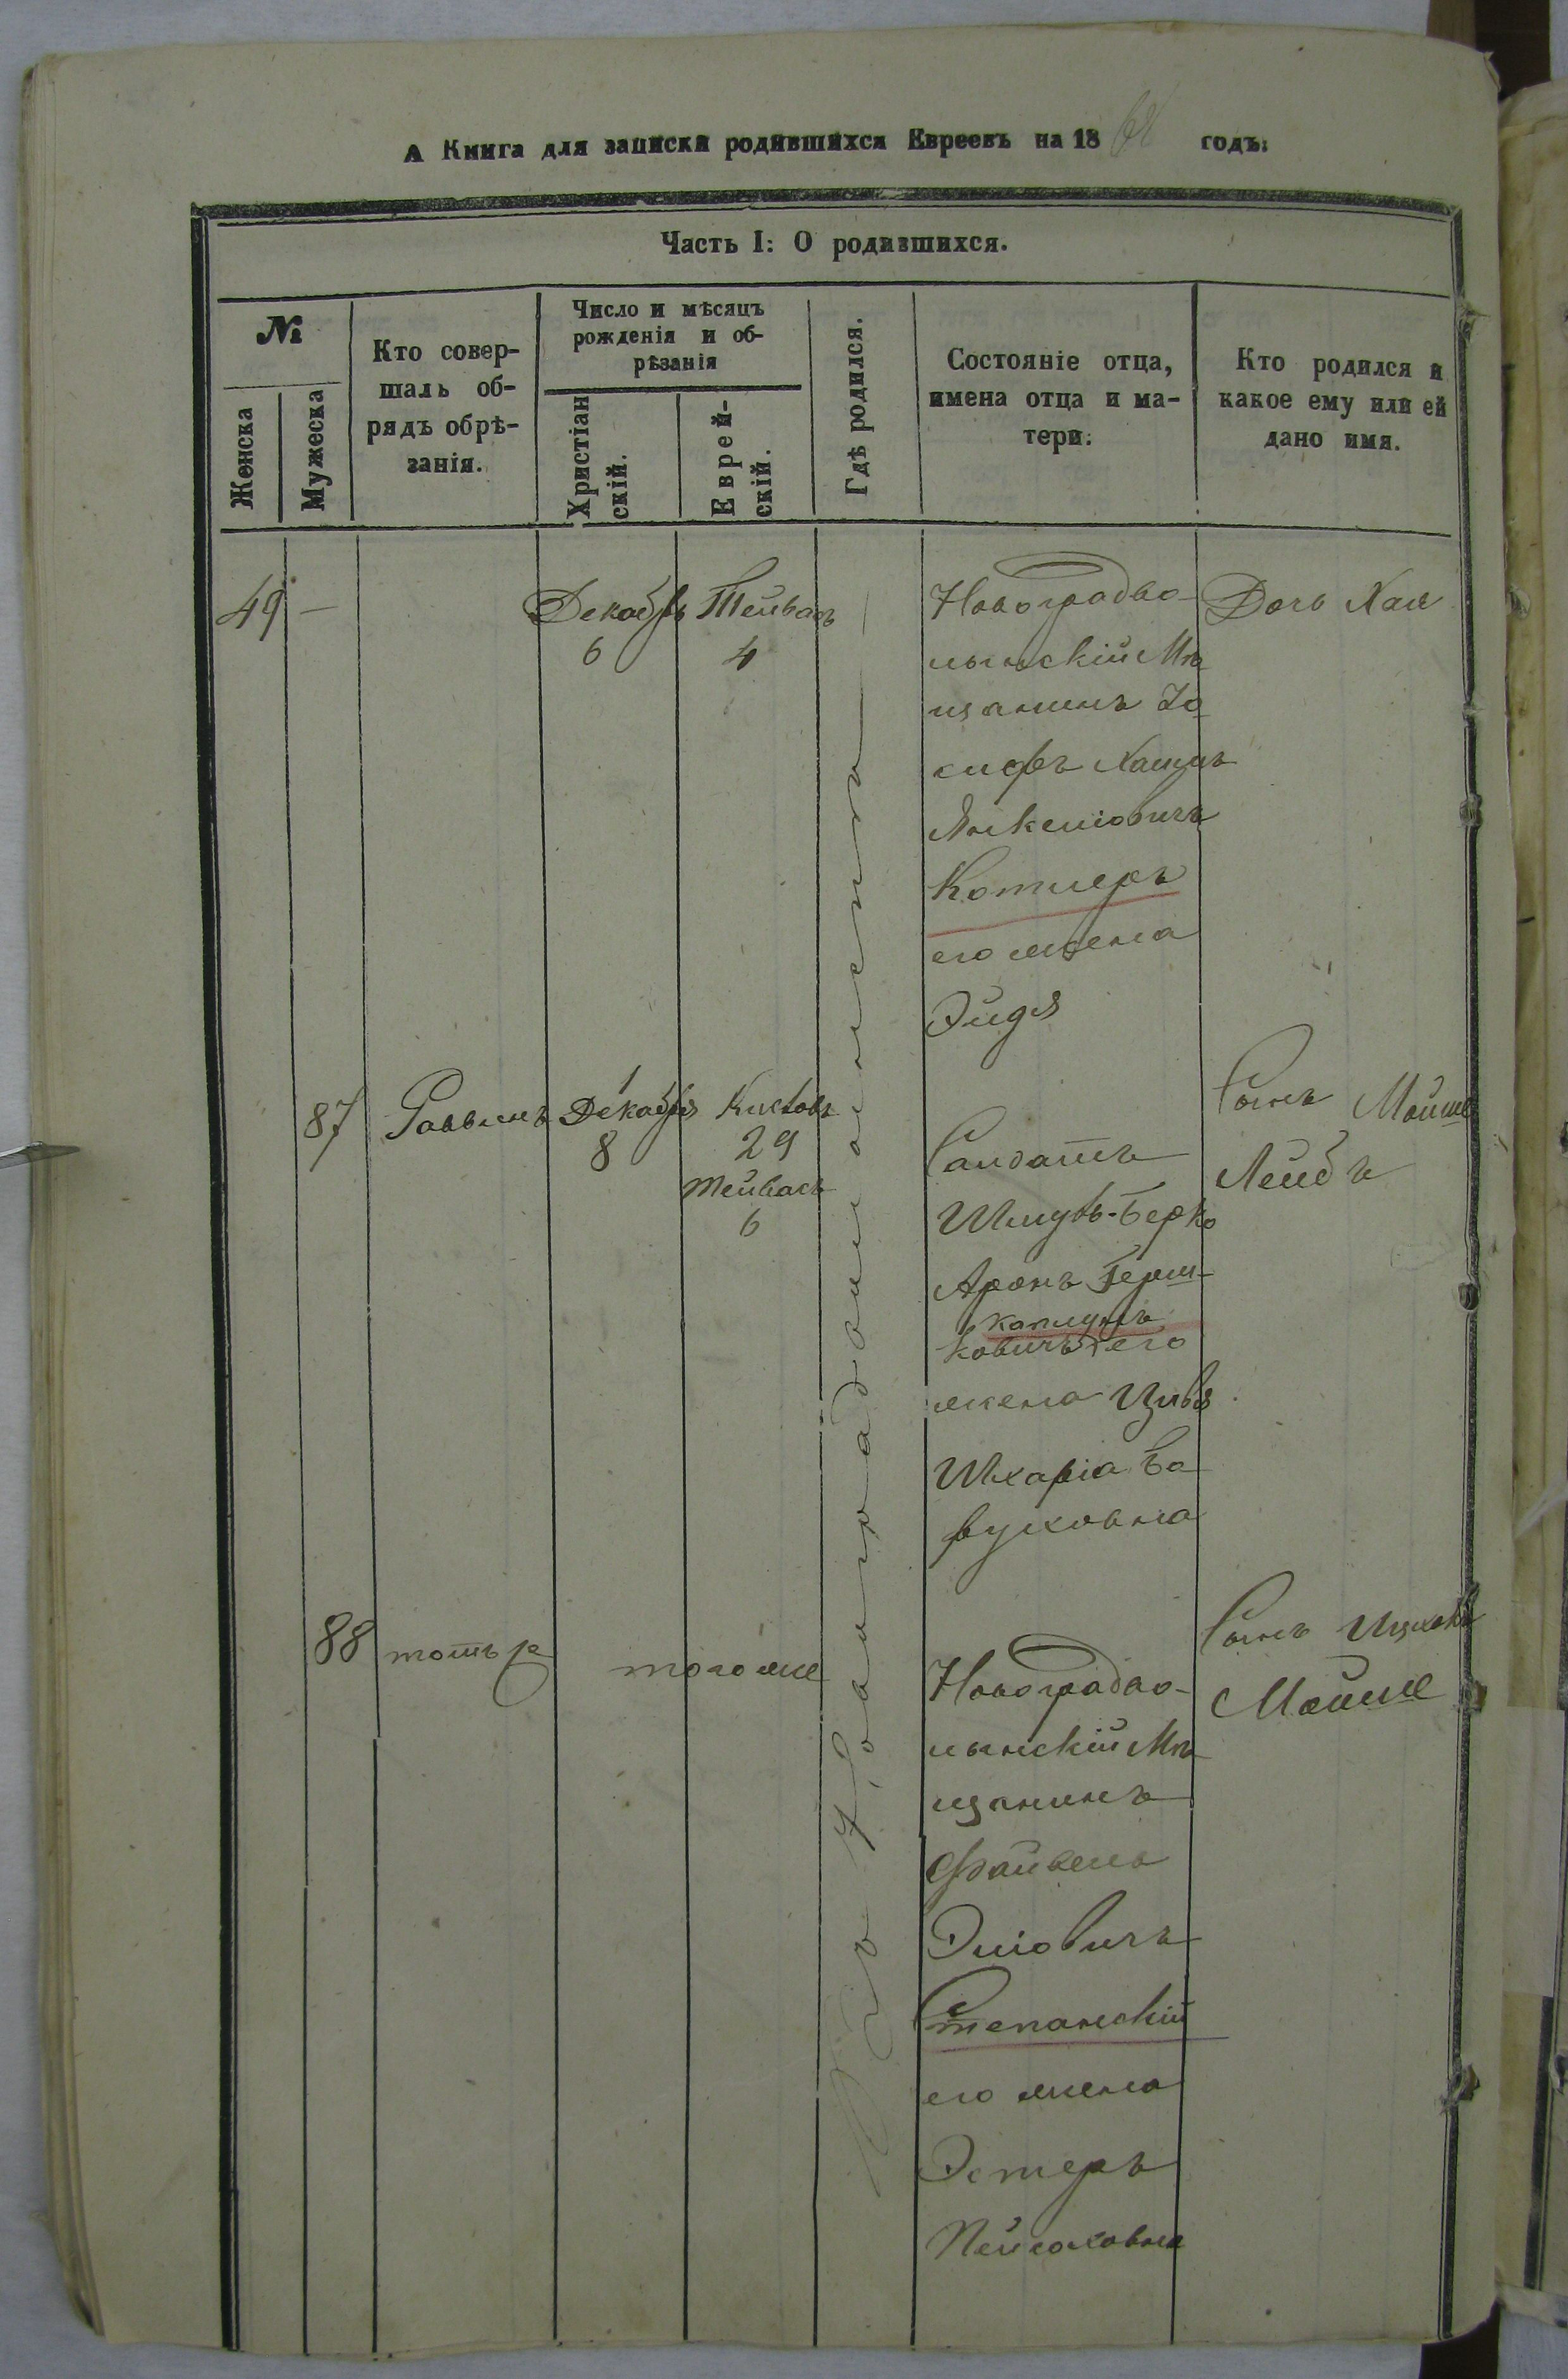 А Книга для записки родившихся Евреевъ на 18 годъ:
Часть I: О родившихся.
№
Женска
Мужеска
Кто совер-
шалъ об-
рядъ обрѣ-
занія.
Число и мѣсяцъ
рожденія и об-
рѣзанія
Христіан
скій.
Еврей-
скій.
Гдѣ родился.
Состояніе отца,
имена отца и ма-
тери:
Кто родился и
какое ему или ей
дано имя.
49 —
Декабрь
6
Тейвасъ
4
Новоградво-
лынскій Мѣ
щанинъ Іо
сифъ Хаимъ
Янкеліовичъ
Котлеръ
его жена
Эйдя
Дочь Хая
Въ Новоградволынскѣ
87
Раввинъ
1
Декабря
8
Кислова
29
Тейвасъ
6
Солдатъ
Шмуль-Берко
Аронъ Герш-
каплунъ
ковичъ его
жена Цивя
Шхаріа Бо
руховна
Сынъ Мойше
Лейбъ
88
тотъ же
тогоже
Новоградво-
лынскій Мѣ
щанинъ
Файвель
Эліовичъ
Степанскій
его жена
Эстеръ
Пейсаховна
Сынъ Ицхокъ
Мойше